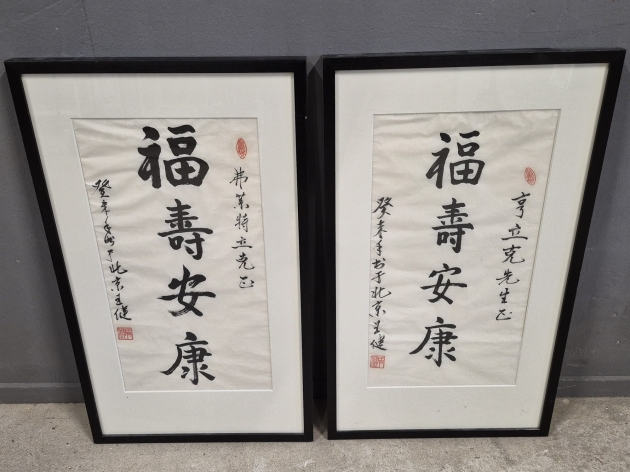 弗莱特立克正
福壽安康
癸未年书于北京王健
亨立克先生正
福壽安康
癸未年书于北京王健